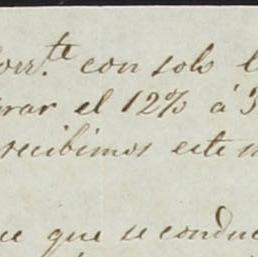 corr.te con solo l
rar el 12% á 3
recibimos este m
ce que se conduc